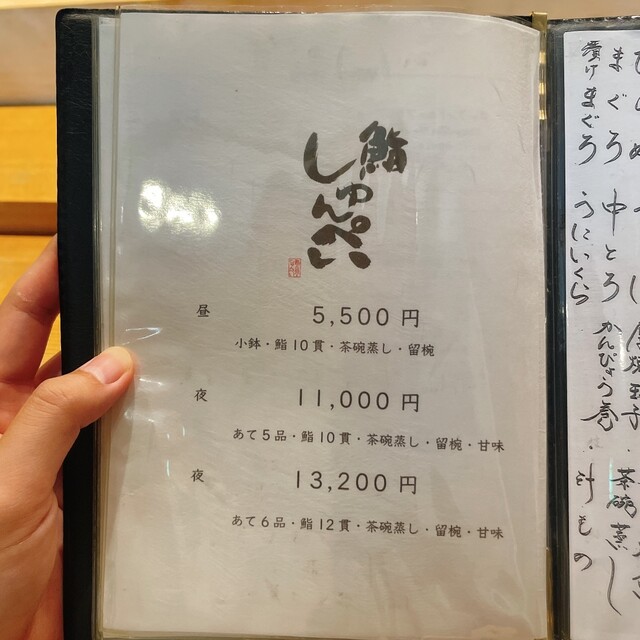 鮨
しゅんぺい
昼 5,500円
小鉢・鮨10貫・茶碗蒸し・留椀
夜 11,000円
あて5品・鮨10貫・茶碗蒸し・留椀・甘味
夜 13,200円
あて6品・鮨12貫・茶碗蒸し・留椀・甘味
茶碗蒸し
まぐろ 中とろ かんぴょう巻
漬けまぐろ うにいくら